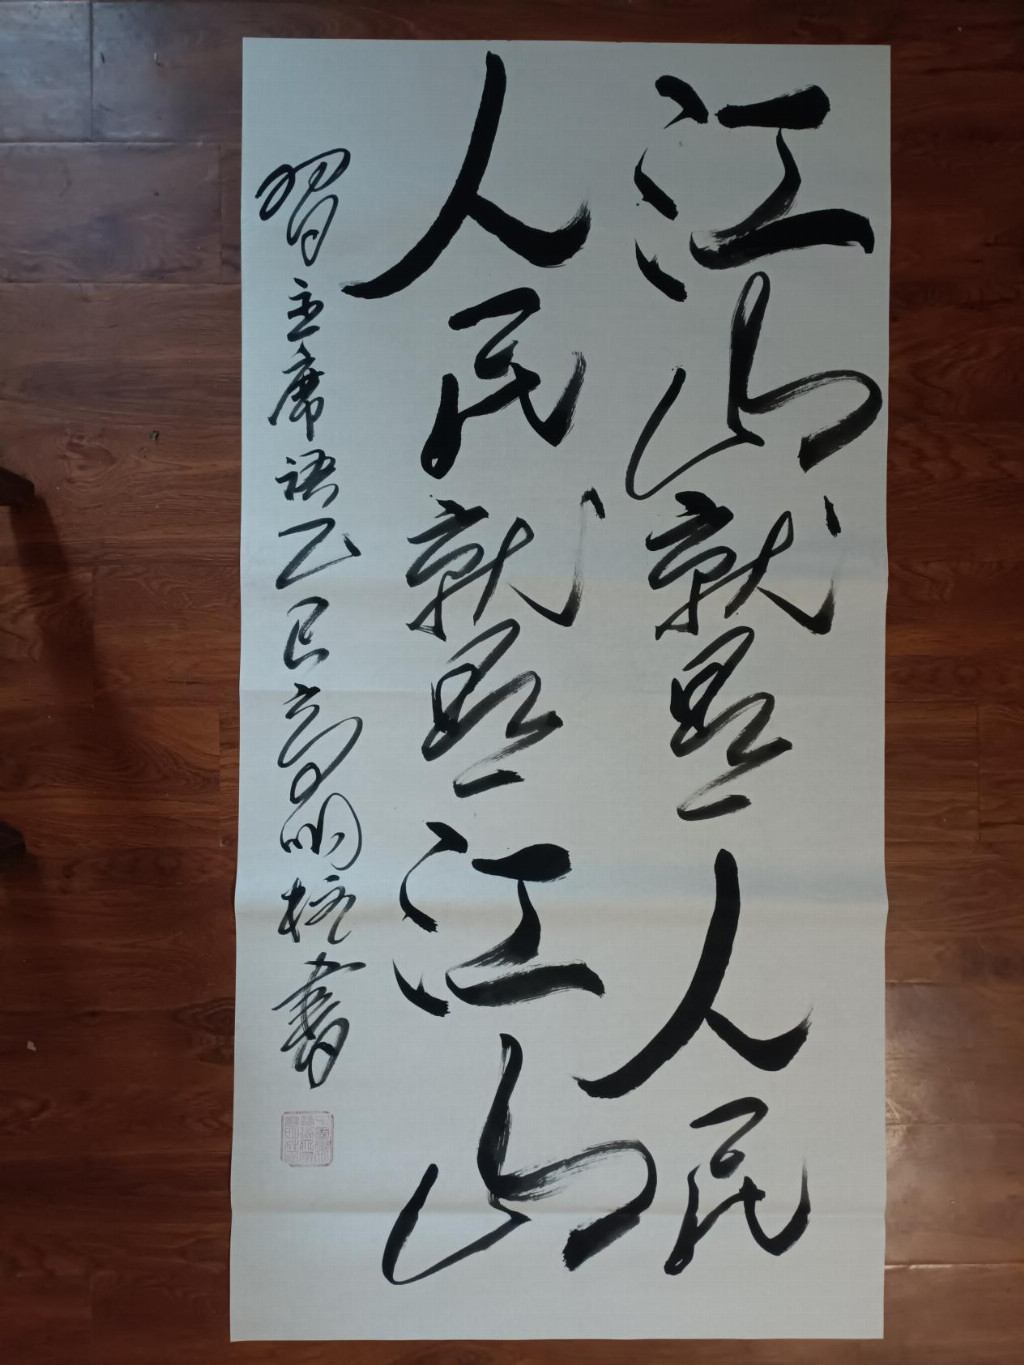 江山就是人民
人民就是江山
習主席语乙巳高明格書